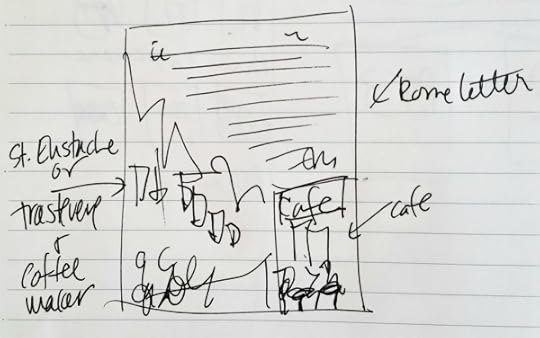 Rome letter
St. Eustache
or
trastevere
+
coffee
maker
cafe
cafe